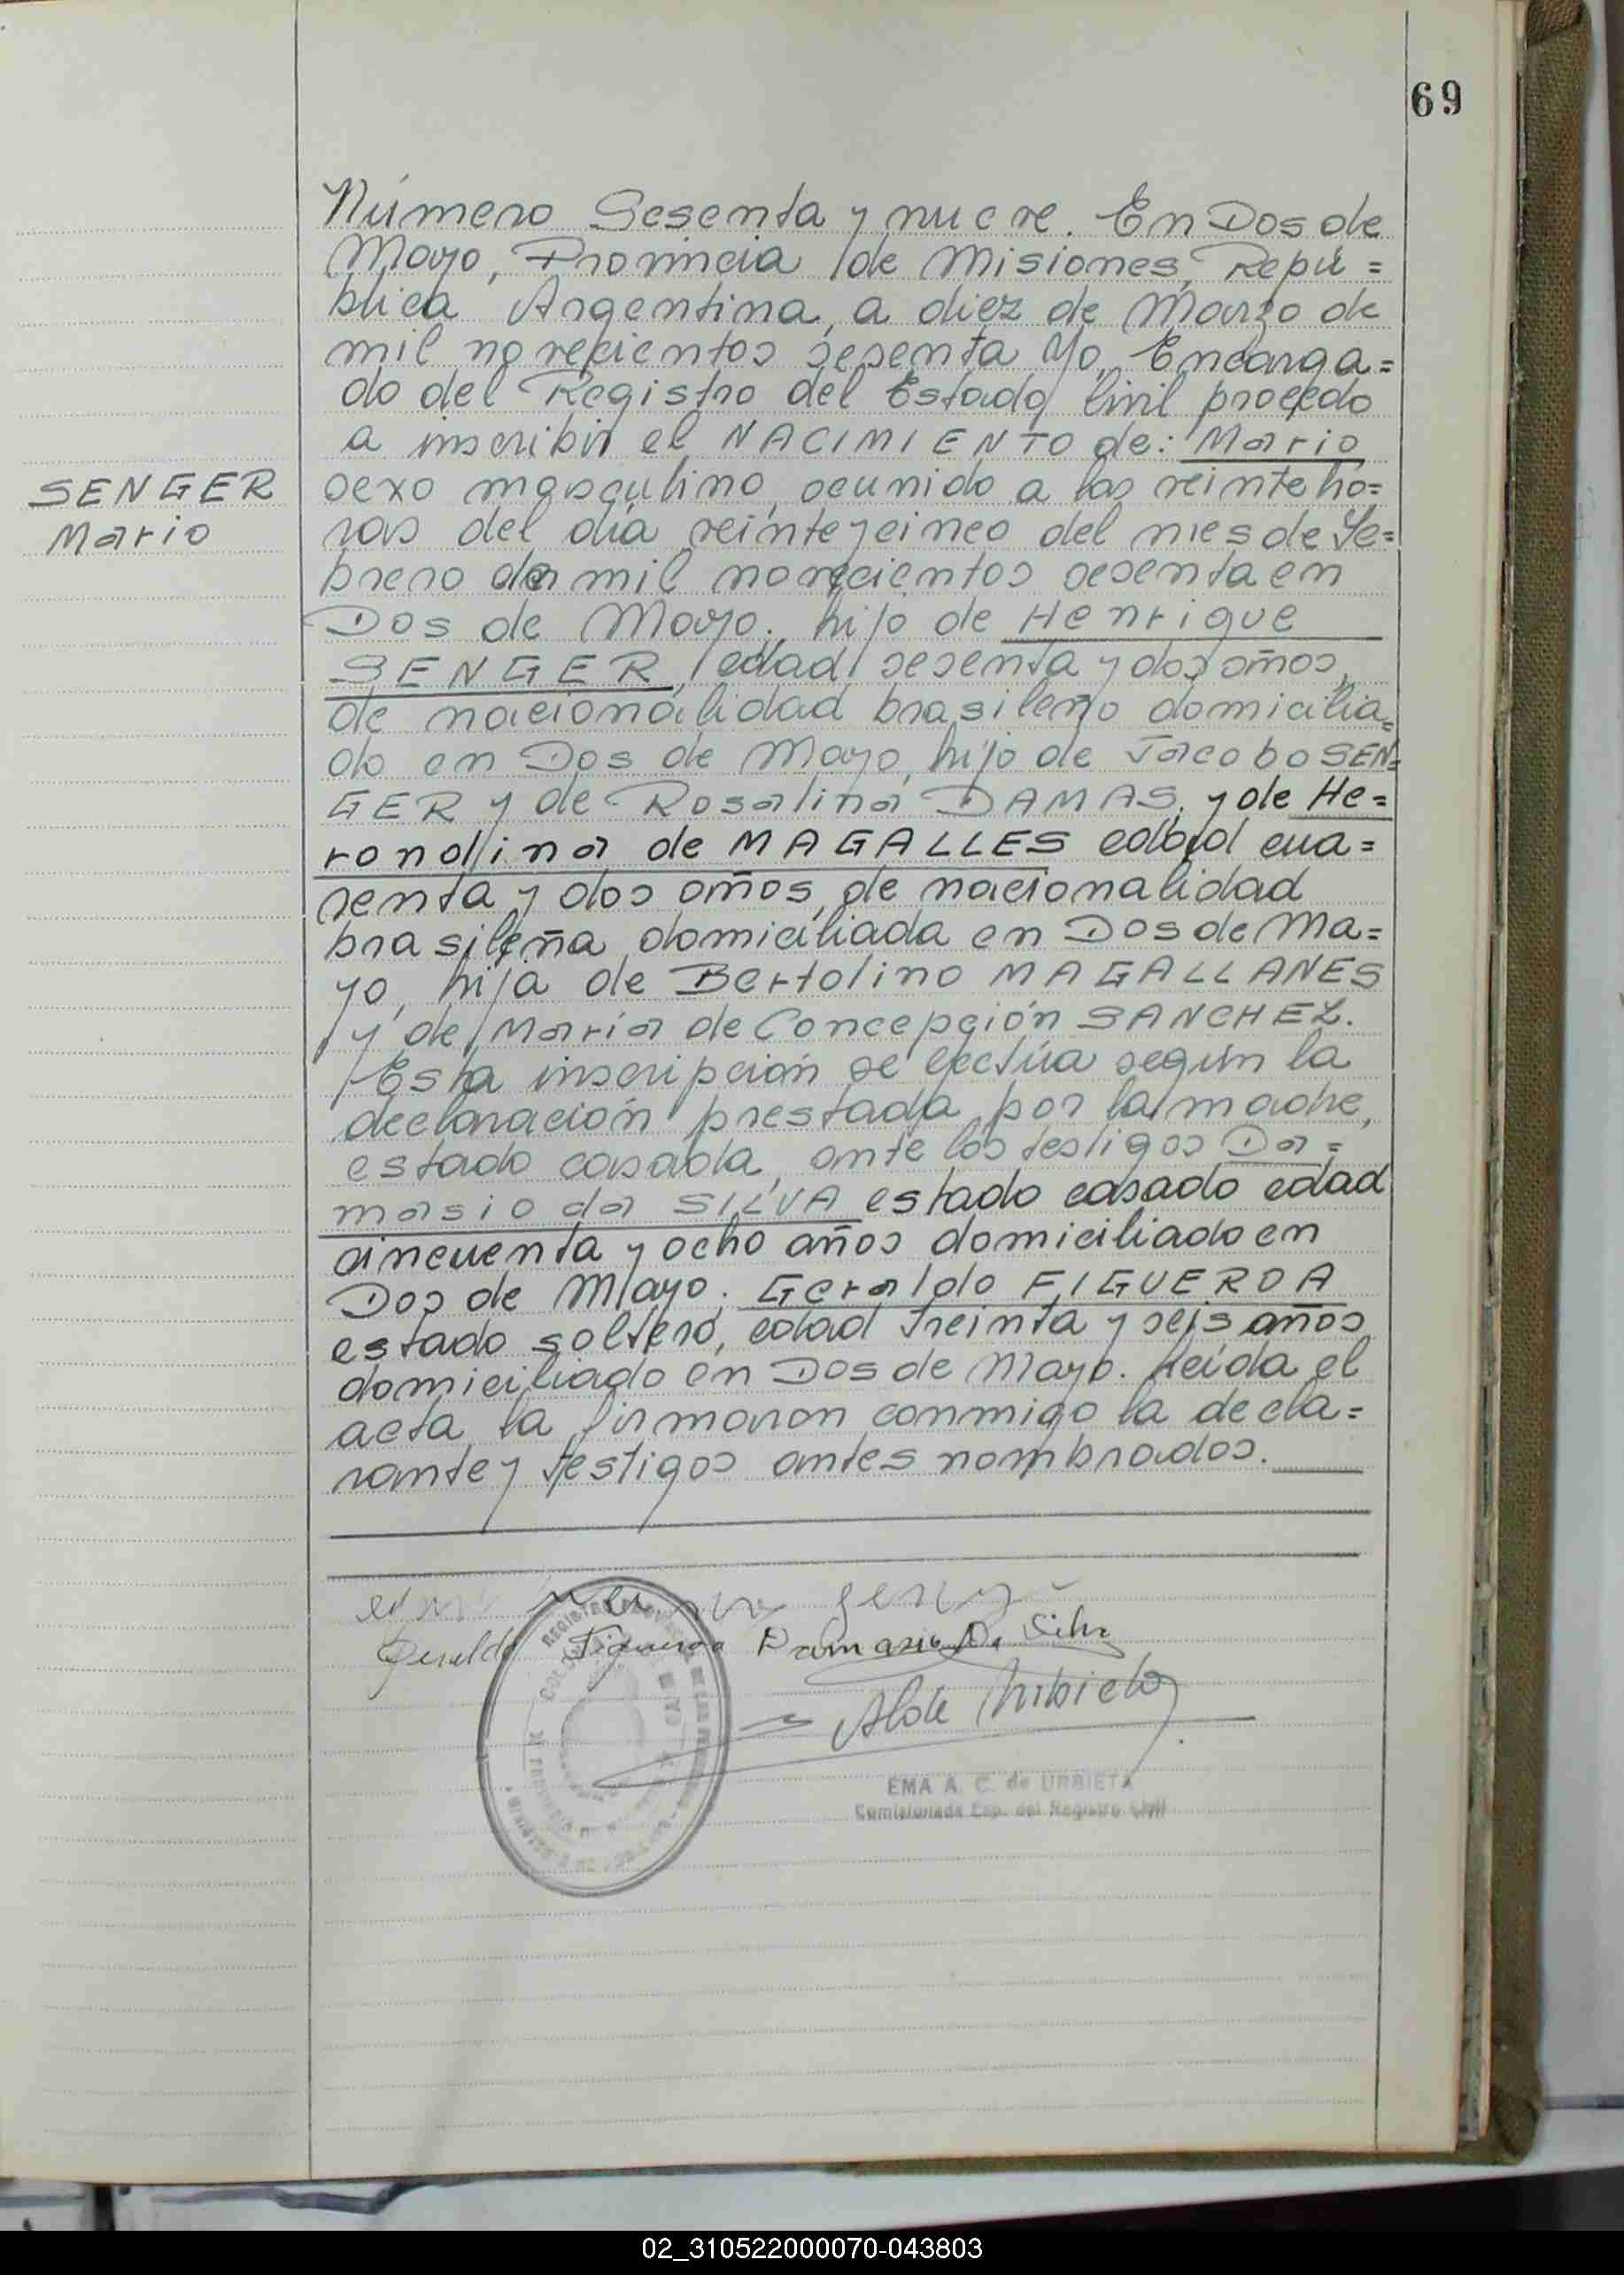 69
Número Sesenta y nueve. En Dos de
Mayo, Provincia de Misiones, Repú=
blica Argentina, a diez de Marzo de
mil novecientos sesenta Yo, Encarga=
do del Registro del Estado Civil procedo
a inscribir el NACIMIENTO de: Mario
SENGER
Mario
sexo masculino, ocurrido a las veinte ho=
ras del día veinte y cinco del mes de Fe=
brero de mil novecientos sesenta en
Dos de Mayo. hijo de Henrique
SENGER, edad sesenta y dos años,
de nacionalidad brasileño domicilia=
do en Dos de Mayo, hijo de Jacobo SEN=
GER y de Rosalina DAMAS, y de He=
rondina de MAGALLES edad cua=
renta y dos años, de nacionalidad
brasileña domiciliada en Dos de Ma=
yo, hija de Bertolino MAGALLANES
y de María de Concepción SANCHEZ.
Esta inscripción se efectúa según la
declaración prestada por la madre,
estado casada, ante los testigos Da=
masio da SILVA estado casado edad
cincuenta y ocho años domiciliado en
Dos de Mayo. Geraldo FIGUEROA
estado soltero, edad treinta y seis años
domiciliado en Dos de Mayo. Leída el
acta, la firmaron conmigo la decla=
rante y testigos antes nombrados.
Geraldo Figueroa Damasio Da Silva
EMA A. C. de URBIETA
Comisionada Esp. del Registro Civil
02_310522000070-043803